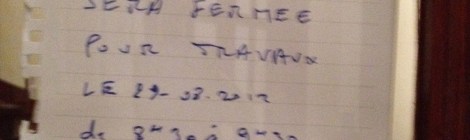 SERA FERMEE
POUR TRAVAUX
LE 29-08.2012
de 8H30 à 9H30